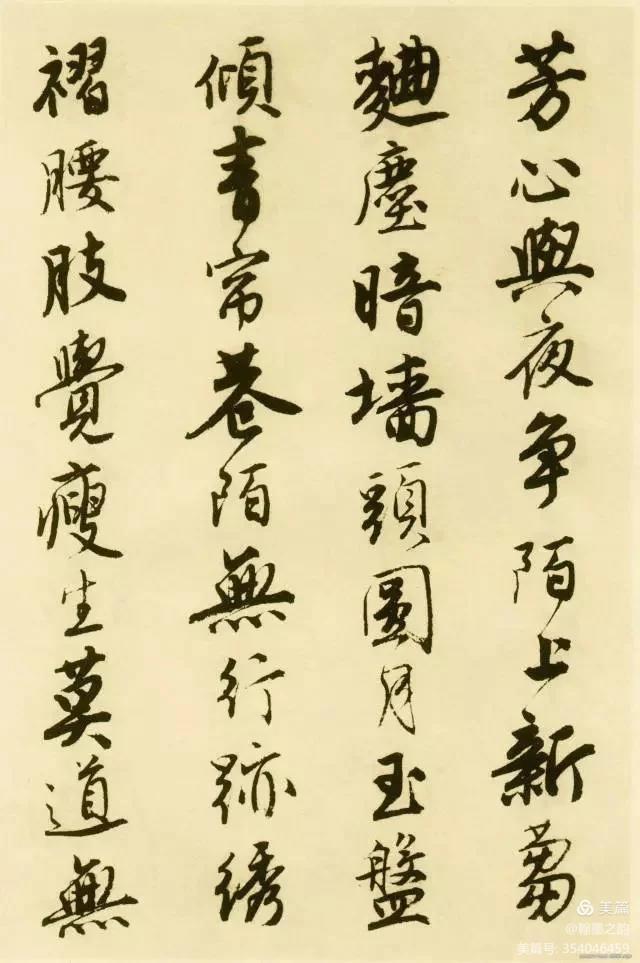 芳心與夜争陌上新蒭
麯塵暗墻頭圓月玉盤
傾青帘巷陌無行跡綉
褶腰肢覺瘦生莫道無
美篇
@翰墨之韵
美篇号: 354046459